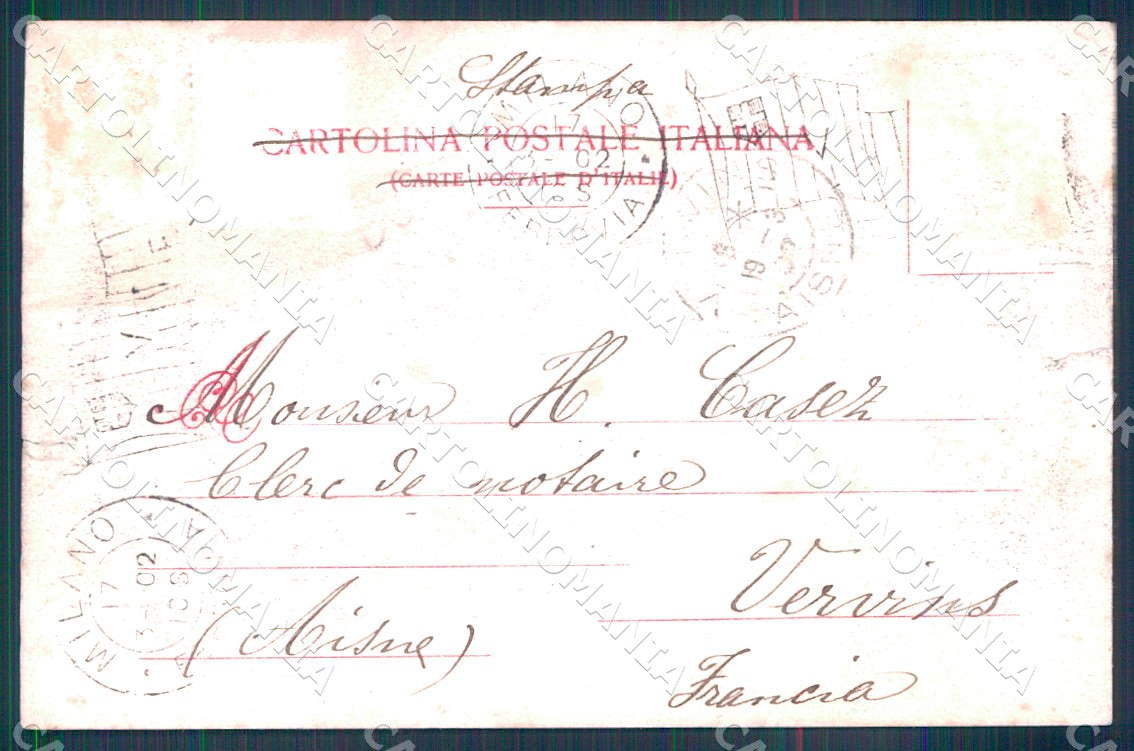 Stampa
CARTOLINA POSTALE ITALIANA
(CARTE POSTALE D'ITALIE)
MILANO
17
3-02
FERROVIA
Monsieur H. Casez
Clerc de notaire
Vervins
(Aisne)
Francia
MILANO
17
3-02
CARTOLINOMANIA